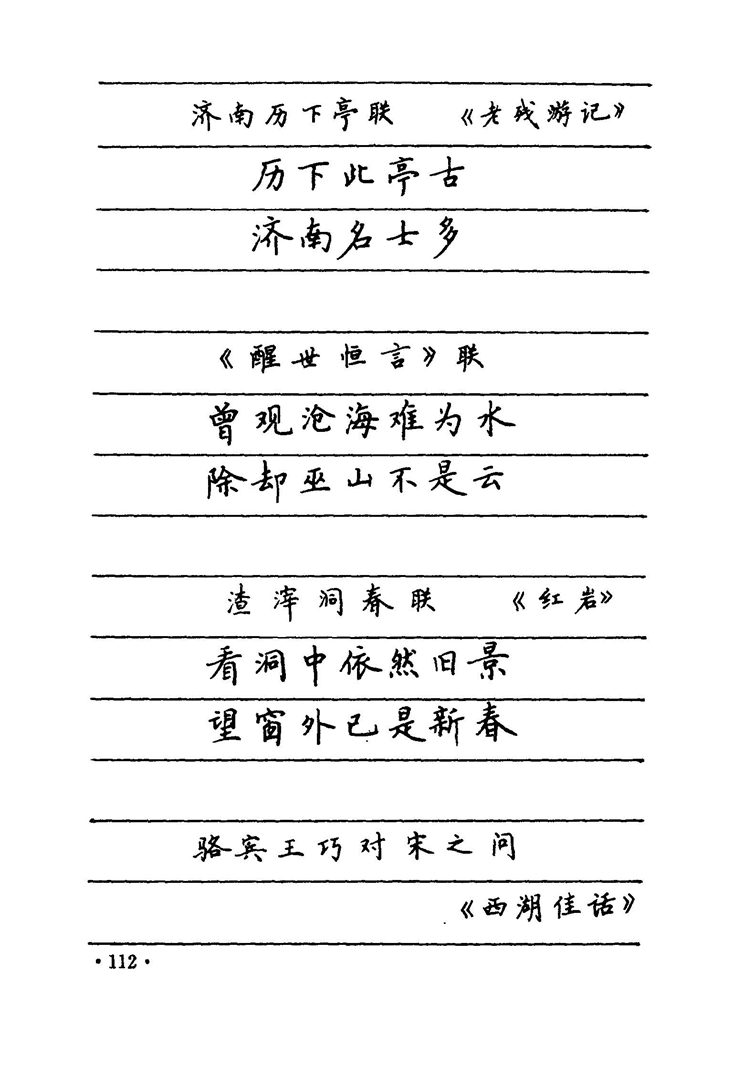 济南历下亭联 《老残游记》
历下此亭古
济南名士多
《醒世恒言》联
曾观沧海难为水
除却巫山不是云
渣滓洞春联 《红岩》
看洞中依然旧景
望窗外已是新春
骆宾王巧对宋之问
《西湖佳话》
·112·